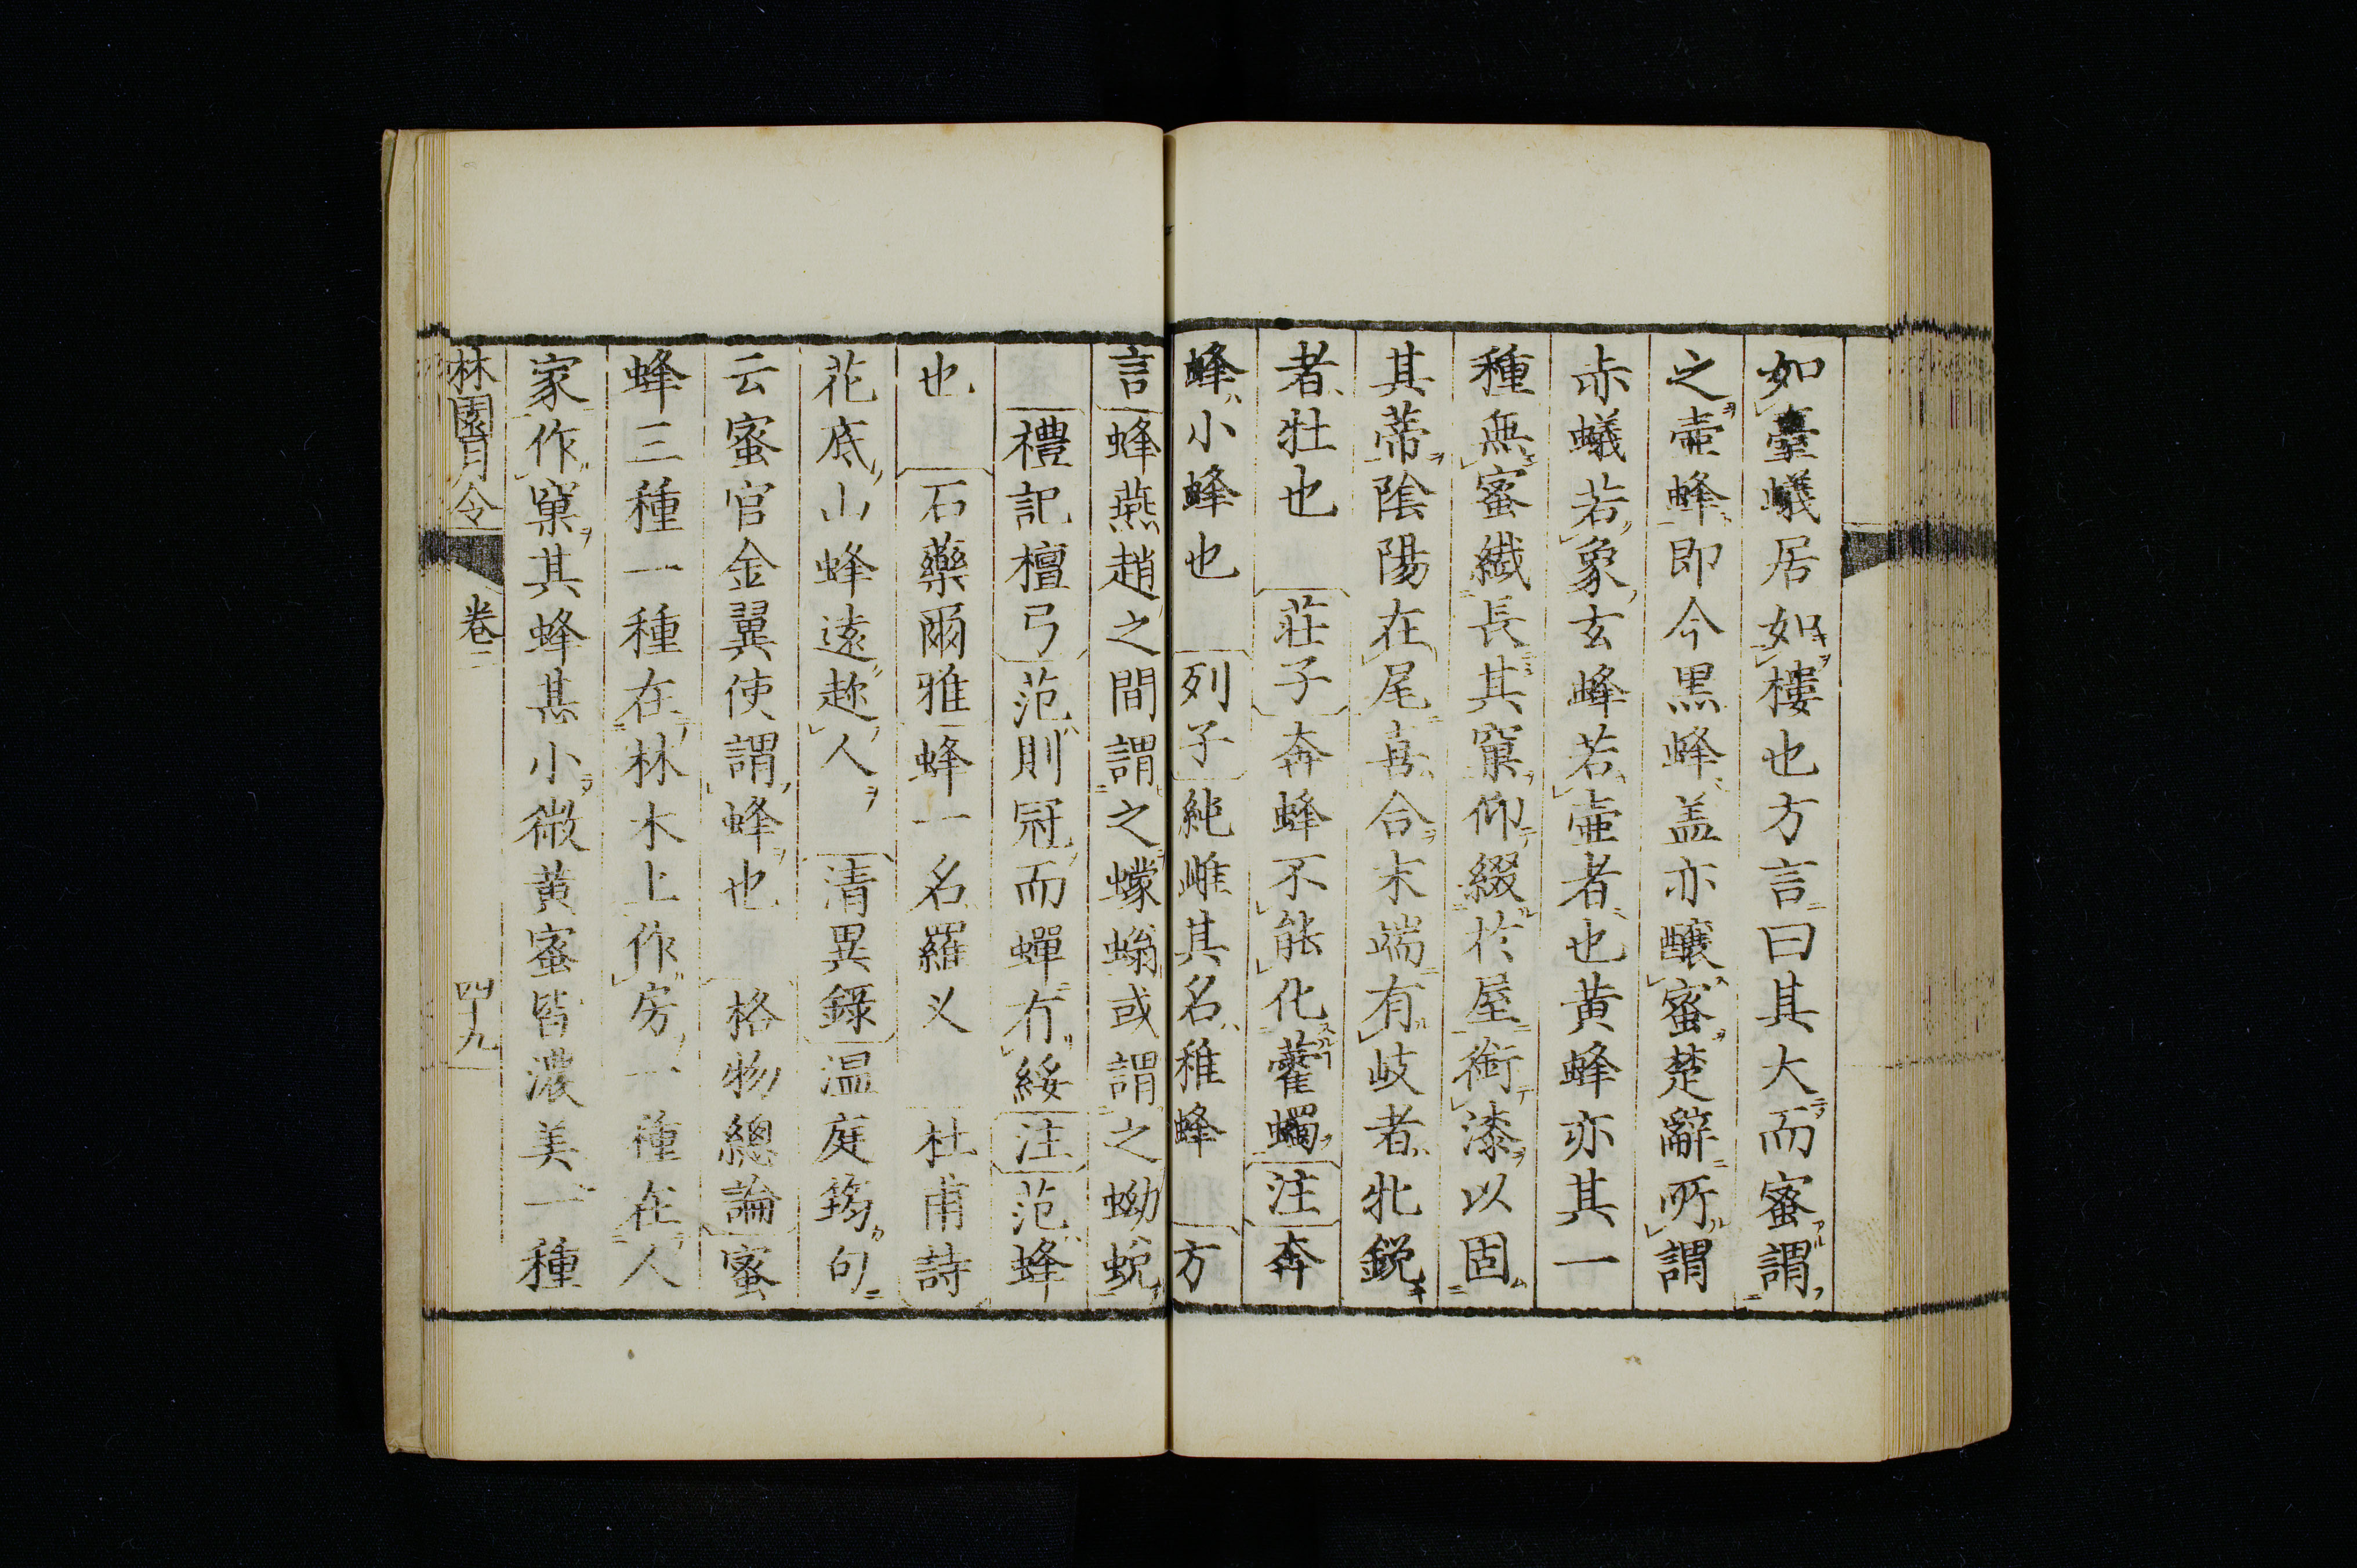 如臺蟻居如樓也方言曰其大而蜜謂
之壷蜂即今黒蜂盖亦釀蜜楚辭所謂
赤蟻若象玄蜂若壷者也黄蜂亦其一
種無蜜纎長其窠仰綴於屋銜漆以固
其蒂陰陽在尾再合末端有岐者牝鋭
者牡也 荘子奔蜂不能化藿蠋注奔
蜂小蜂也 列子純雌其名稚蜂 方
言蜂燕趙之間謂之蠓螉或謂之蚴蛻
禮記檀弓范則冠而蟬有綏注范蜂
也 石藥爾雅蜂一名羅义 杜甫詩
花底山蜂遠趂人 清異錄温庭筠句
云蜜官金翼使謂蜂也 格物總論蜜
蜂三種一種在林木上作房一種在人
家作窠其蜂甚小微黄蜜皆濃美一種
林園月令 卷二 四十九